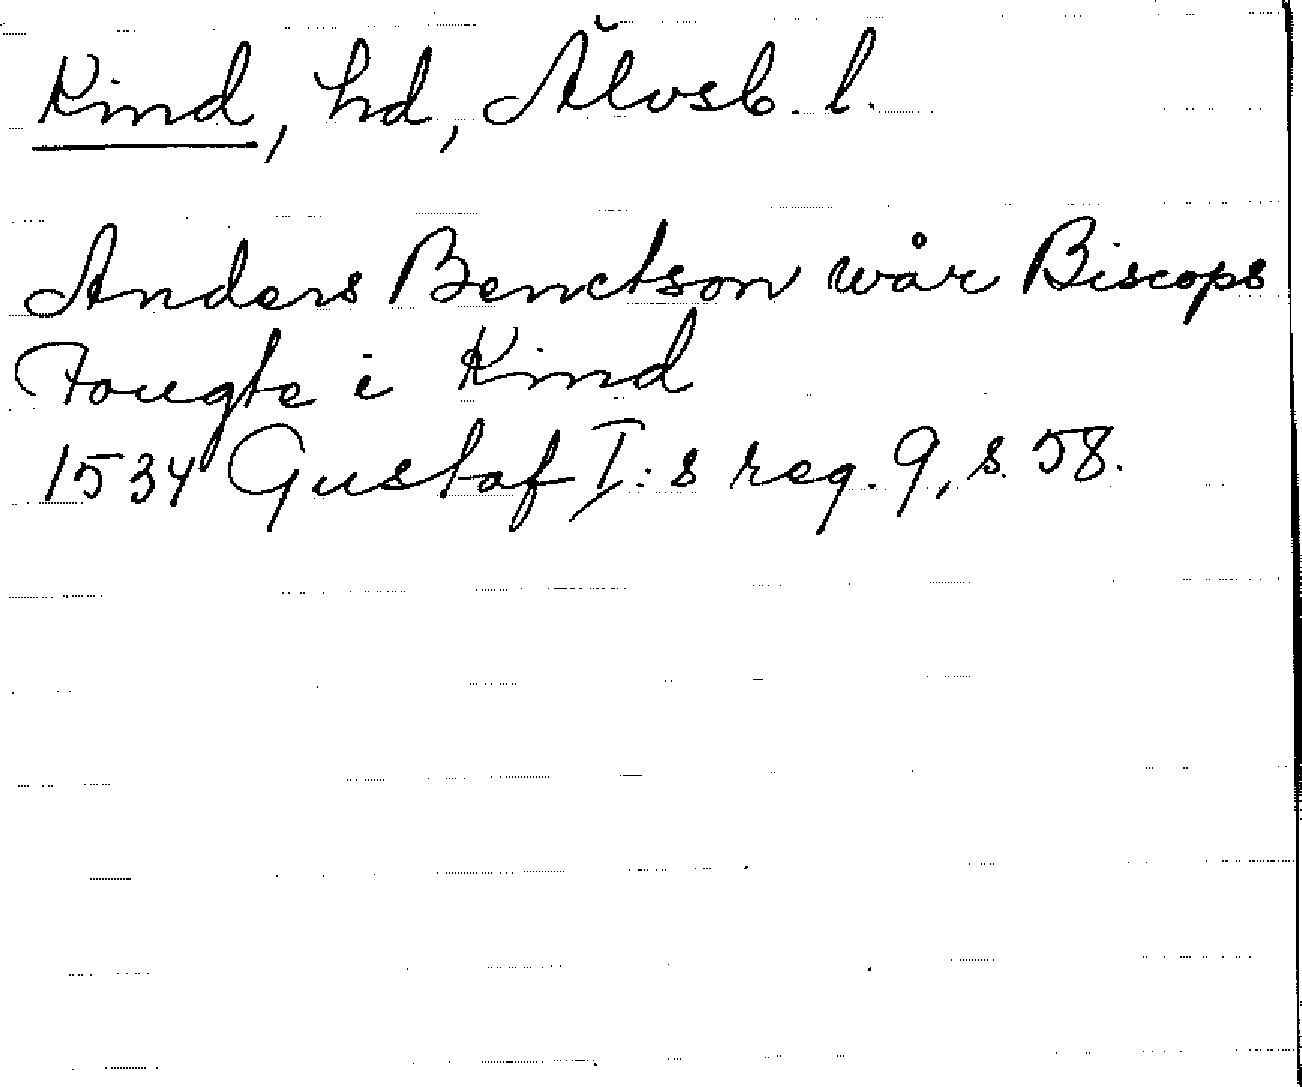 Kind, hd, Älvsb. l.
Anders Benctson wår Biscops
Fougte i Kind
1534 Gustaf I:s reg. 9, s. 58.